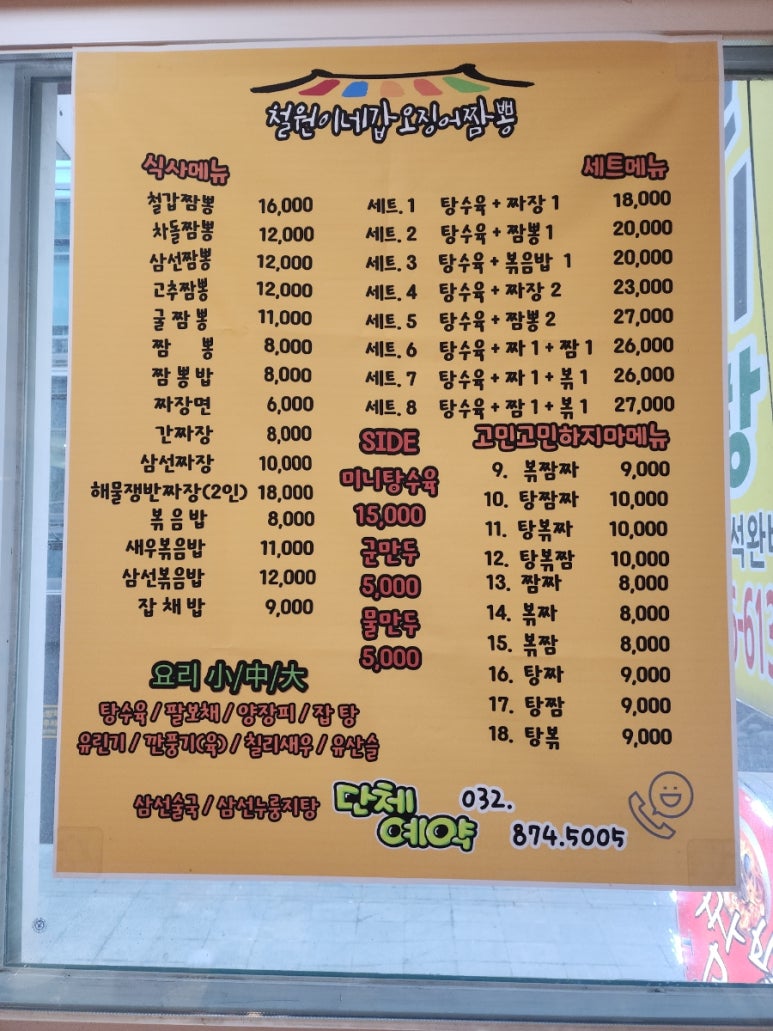 철원이네갑오징어짬뽕
식사메뉴
철갑짬뽕 16,000
차돌짬뽕 12,000
삼선짬뽕 12,000
고추짬뽕 12,000
굴짬뽕 11,000
짬 뽕 8,000
짬뽕밥 8,000
짜장면 6,000
간짜장 8,000
삼선짜장 10,000
해물쟁반짜장(2인) 18,000
볶음밥 8,000
새우볶음밥 11,000
삼선볶음밥 12,000
잡채밥 9,000
세트메뉴
세트.1 탕수육+짜장1 18,000
세트.2 탕수육+짬뽕1 20,000
세트.3 탕수육+볶음밥 1 20,000
세트.4 탕수육+짜장2 23,000
세트.5 탕수육+짬뽕2 27,000
세트.6 탕수육+짜1+짬1 26,000
세트.7 탕수육+짜1+볶1 26,000
세트.8 탕수육+짬1+볶1 27,000
SIDE
미니탕수육
15,000
군만두
5,000
물만두
5,000
고민고민하지마메뉴
9. 볶짬짜 9,000
10. 탕짬짜 10,000
11. 탕볶짜 10,000
12. 탕볶짬 10,000
13. 짬짜 8,000
14. 볶짜 8,000
15. 볶짬 8,000
16. 탕짜 9,000
17. 탕짬 9,000
18. 탕볶 9,000
요리 小/中/大
탕수육/팔보채/양장피/잡탕
유린기/깐풍기(육)/칠리새우/유산슬
삼선술국/삼선누룽지탕
단체
예약
032.
874.5005
석완
6-613